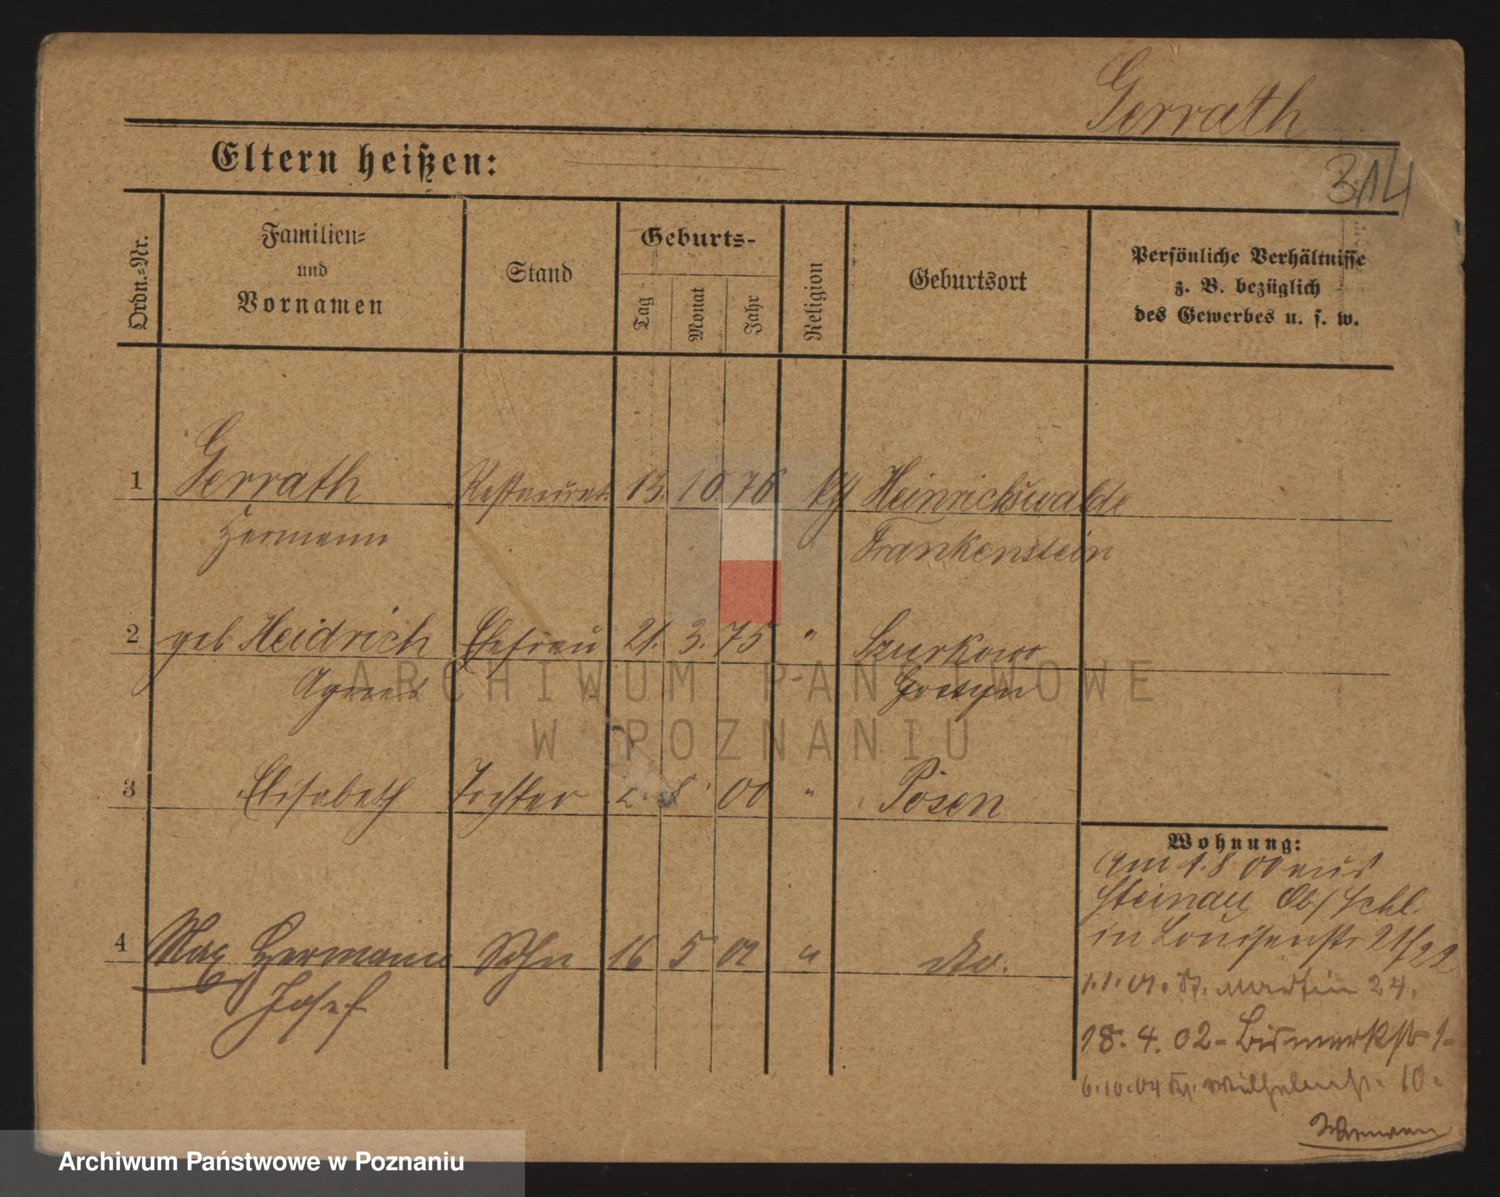 Gerrath
Eltern heißen:
314
Ordn.=Nr.
Familien=
und
Vornamen
Stand
Geburts-
Tag
Monat
Jahr
Religion
Geburtsort
Persönliche Verhältnisse
z. B. bezüglich
des Gewerbes u. s. w.
1 Gerrath Restaurat. 13. 10. 76 Heinrichswalde
Hermann Frankenstein
2 geb Heidrich Ehefrau 21. 3. 75 " Szurkowo
Agnes Gostyn
ARCHIWUM PAŃSTWOWE
W POZNANIU
3 Elisabeth Tochter 2 8 00 " Posen
Wohnung:
Am 1.8 00 aus
Steinau Ob/Schl.
in Louisenstr 21/22
4 Max Hermann Sohn 16 5 02 " do.
Josef
1.1.01. St. Martin 24.
18. 4. 02 - Bismarkstr 1-
6.10.04 Wilhelmstr. 10.
Archiwum Państwowe w Poznaniu